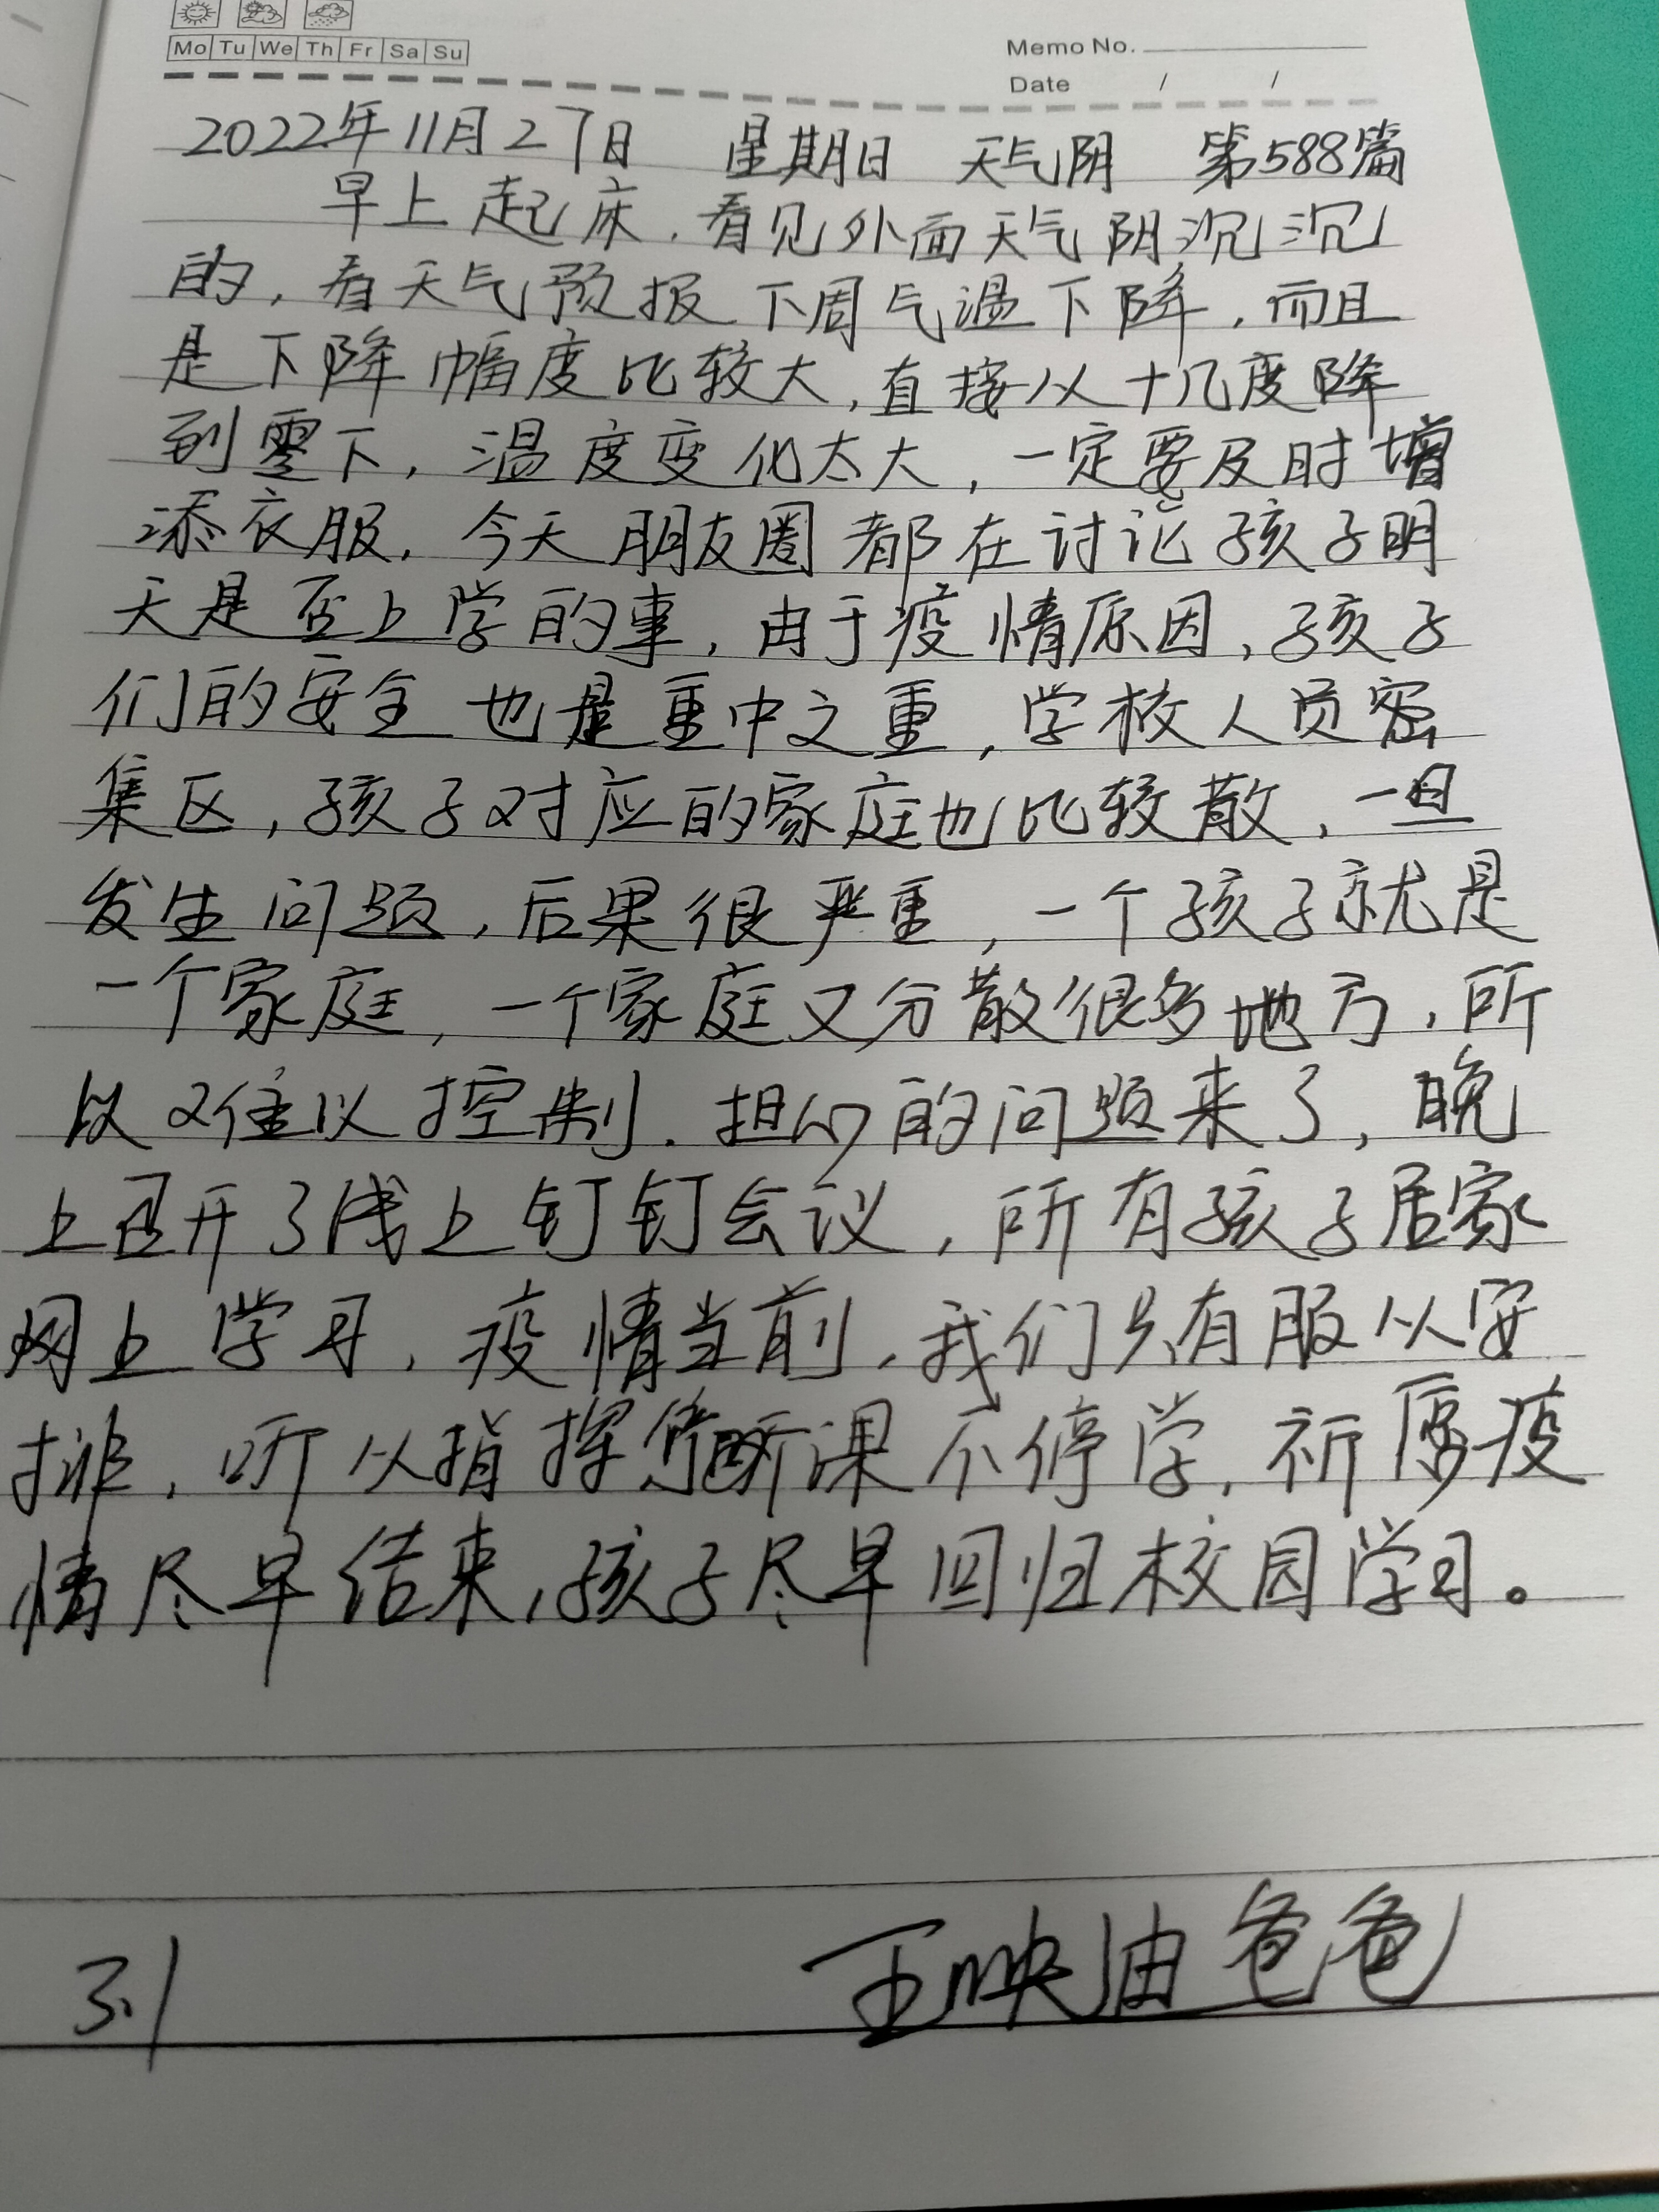 Mo Tu We Th Fr Sa Su
Memo No.
Date / /
2022年11月27日 星期日 天气阴 第588篇
早上起床,看见外面天气阴沉沉
的,看天气预报下周气温下降,而且
是下降幅度比较大,直接从十几度降
到零下,温度变化太大,一定要及时增
添衣服,今天朋友圈都在讨论孩子明
天是否上学的事,由于疫情原因,孩子
们的安全也是重中之重,学校人员密
集区,孩子对应的家庭也比较散,一旦
发生问题,后果很严重,一个孩子就是
一个家庭,一个家庭又分散很多地方,所
以又难以控制.担心的问题来了,晚
上召开了线上钉钉会议,所有孩子居家
网上学习,疫情当前,我们只有服从安
排,听从指挥课不停学,祈愿疫
情尽早结束,孩子尽早回归校园学习。
王映迪爸爸